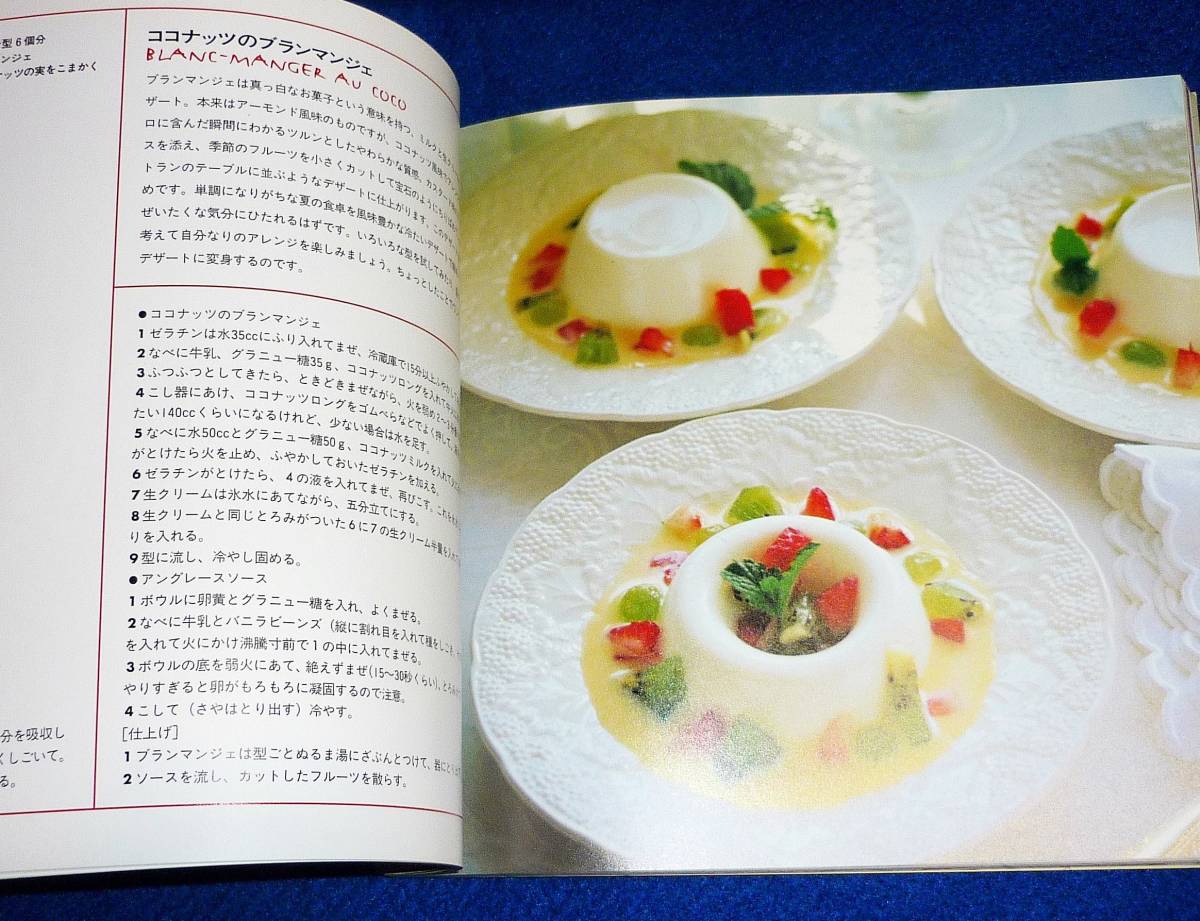 型6個分
ンジェ
ナッツの実をこまかく
分を吸収し
くしごいて。
る。
ココナッツのブランマンジェ
BLANC-MANGER AU COCO
ブランマンジェは真っ白なお菓子という意味を持つ、ミルクと生ク
ザート。本来はアーモンド風味のものですが、ココナッツ風味
ロに含んだ瞬間にわかるツルンとしたやわらかな質感。カスター
スを添え、季節のフルーツを小さくカットして宝石のようにちりば
トランのテーブルに並ぶようなデザートに仕上がります。このデザー
めです。単調になりがちな夏の食卓を風味豊かな冷たいデザート
ぜいたくな気分にひたれるはずです。いろいろな型を試してみたり、
考えて自分なりのアレンジを楽しみましょう。ちょっとしたことで
デザートに変身するのです。
●ココナッツのブランマンジェ
1 ゼラチンは水35ccにふり入れてまぜ、冷蔵庫で15分以上ふやかし
2 なべに牛乳、グラニュー糖35g、ココナッツロングを入れて
3 ふつふつとしてきたら、ときどきまぜながら、火を弱め2〜3
4 こし器にあけ、ココナッツロングをゴムべらなどでよく押して、
たい140ccくらいになるけれど、少ない場合は水を足す。
5 なべに水50ccとグラニュー糖50g、ココナッツミルクを入れて
がとけたら火を止め、ふやかしておいたゼラチンを加える。
6 ゼラチンがとけたら、4の液を入れてまぜ、再びこす。これを
7 生クリームは氷水にあてながら、五分立てにする。
8 生クリームと同じとろみがついた6に7の生クリーム半量を入れて
りを入れる。
9 型に流し、冷やし固める。
●アングレースソース
1 ボウルに卵黄とグラニュー糖を入れ、よくまぜる。
2 なべに牛乳とバニラビーンズ（縦に割れ目を入れて種をしごき、
を入れて火にかけ沸騰寸前で1の中に入れてまぜる。
3 ボウルの底を弱火にあて、絶えずまぜ(15〜30秒くらい)、とろみ
やりすぎると卵がもろもろに凝固するので注意。
4 こして（さやはとり出す）冷やす。
［仕上げ］
1 ブランマンジェは型ごとぬるま湯にざぶんとつけて、器に
2 ソースを流し、カットしたフルーツを散らす。